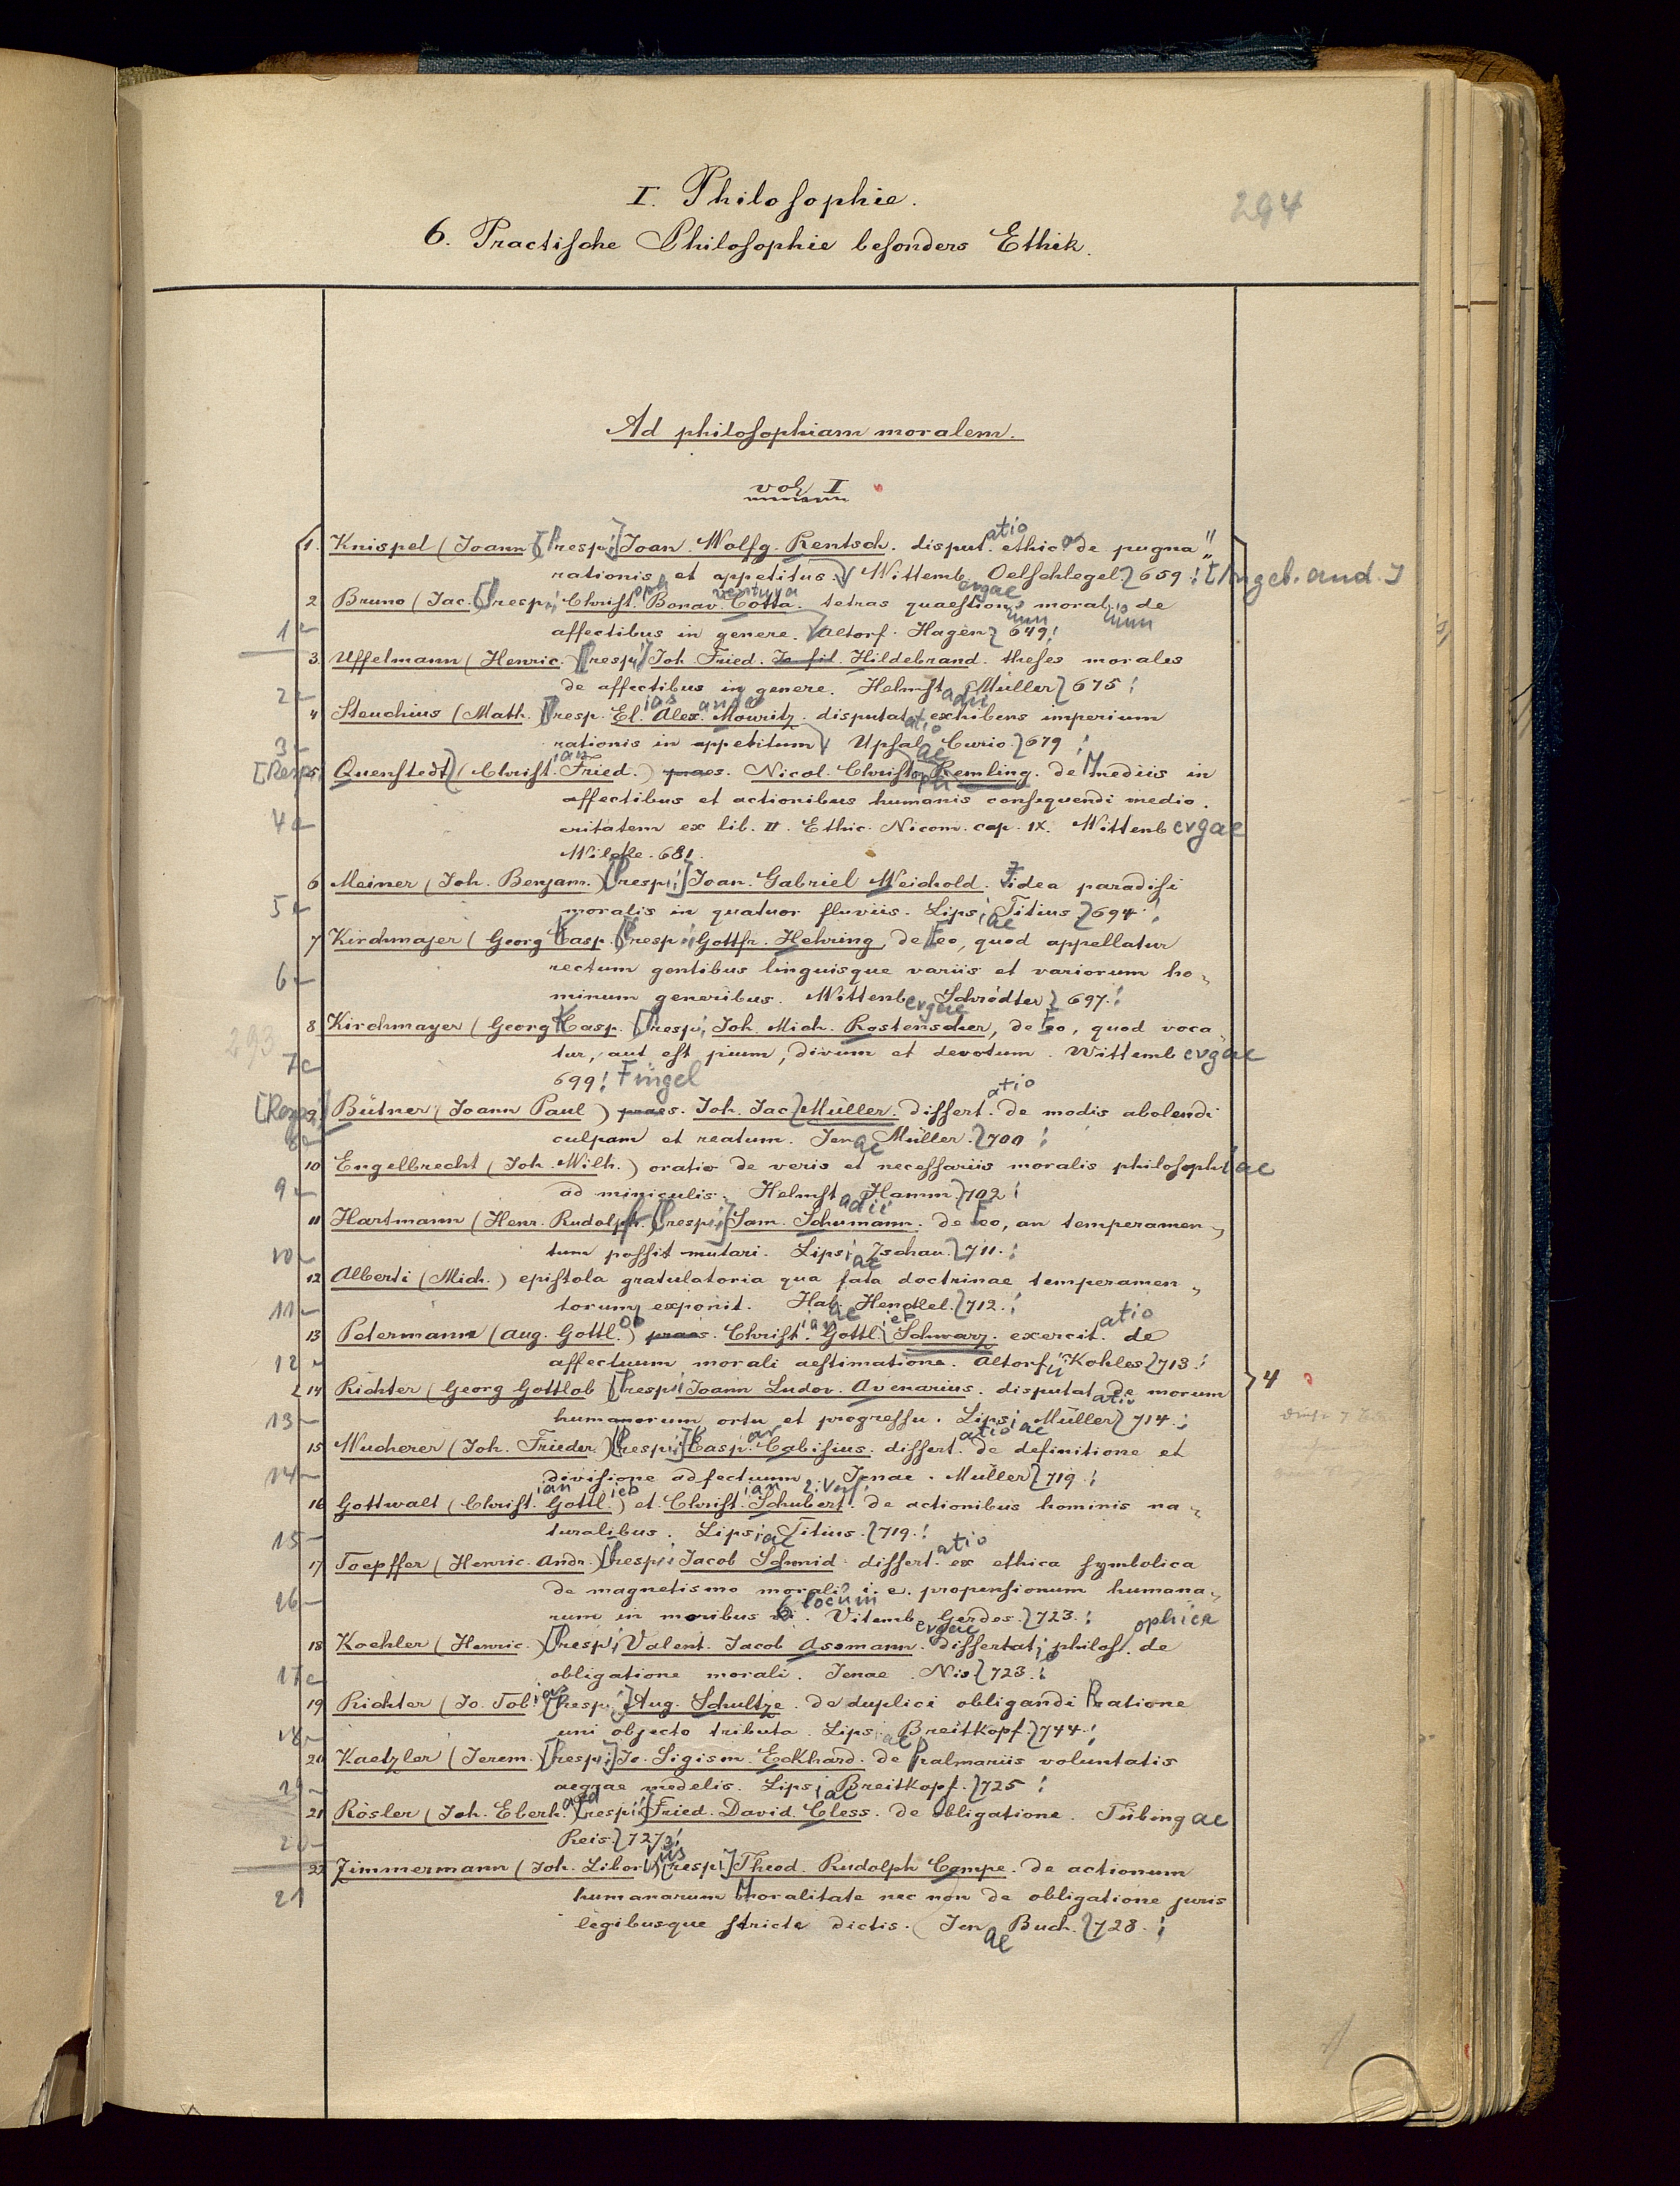 I. Philosophie.
294
6. Practische Philosophie besonders Ethik.
Ad philosophiam moralem.
vol I
1. Knispel (Joann) [resp.] Joan. Wolfg. Rentsch. disputatio ethica de pugna
rationis et appetitus. Wittembergae Oelschlegel 659.
2 Bruno (Jac.) [resp.] Christoph. Bonaventura Cotta. tetras quaestionum moralium de
1
affectibus in genere. Altorf. Hagen 649!
3. Uffelmann (Henric.) [resp.] Joh. Fried. Hildebrand. theses morales
2
de affectibus in genere. Helmstadii Müller 675
4 Steuchius (Math.) [resp. Elias Alex. Mouritz. disputatio exhibens imperium
3
rationis in appetitum Upsalae Curio. 679
[Resp.] 5 Quenstedt (Christian Fried.) praes. Nicol. Christoph Remling. de Mediis in
affectibus et actionibus humanis consequendi medio.
4
critatem ex lib. II. Ethic. Nicom. cap. IX. Wittenbergae
Wilcke. 681.
6 Meiner (Joh. Benjam.) [resp.] Joan. Gabriel Weichold. Idea paradisi
5
moralis in quatuor fluviis. Lipsiae Titius 694.
7 Kirchmajer (Georg Kasp. [resp. Gottfr. Hehring, de Eo, quod appellatur
6
rectum gentibus linguisque variis et variorum ho-
minum generibus. Wittenbergae Schrödter 697.
8 Kirchmayer (Georg Kasp. [resp. Joh. Mich. Rostenscher, de Eo, quod voca
293
7
tur, aut est pium, divum et devotum. Wittembergae
699! Fingel
[Resp.] 9 Bütner (Joann Paul) praes. Joh. Jac. Müller. dissertatio de modis abolendi
8
culpam et reatum. Jenae Müller. 700
10 Engelbrecht (Joh. Wilh.) oratio de veris et necessariis moralis philosophiae
9
ad miniculis. Helmstadii Hamm. 702
11 Hartmann (Henr. Rudolph. [resp.] Sam. Schumann. de Eo, an temperamen-
10
tum possit mutari. Lipsiae Zschau. 711.
12 Alberti (Mich.) epistola gratulatoria qua fata doctrinae temperamen-
11
torum exponit. Halae Hendel. 712.
13 Petermann (Aug. Gottlob) praes. Christian. Gottlieb Schwarz. exercitatio de
12
affectuum morali aestimatione. Altorfii Kohles 713.
14 Richter (Georg Gottlob [resp. Joann Ludov. Avenarius. disputatio de morum
4
13
humanorum ortu et progressu. Lipsiae Müller 714.
15 Wucherer (Joh. Frieder.) [resp.] Caspar. Cabisius. dissertatio de definitione et
14
divisione adfectuum. Jenae. Müller 719.
16 Gottwalt (Christian. Gottlieb.) et Christian. Schubert 2. Verf. de actionibus hominis na-
15
turalibus. Lipsiae Titius. 719.
17 Toepffer (Henric. Andr.) [resp. Jacob Schmid. dissertatio ex ethica symbolica
de magnetismo morali i. e. propensionum humana-
16
rum in moribus locum. Vitembergae Gerdes. 723.
18 Koehler (Henric.) [resp. Valent. Jacob Assmann. dissertatio philosophica de
17
obligatione morali. Jenae. Nis 723.
19 Richter (Jo. Tobias [resp.] Aug. Schultze. de duplici obligandi Ratione
18
uni objecto tributa. Lipsiae Breitkopf. 744.
20 Kaetzler (Jerem.) [resp.] Jo. Sigism. Eckhard. de Palmariis voluntatis
19
aegrae medelis. Lipsiae Breitkopf. 725
21 Rösler (Joh. Eberhard) [resp.] Fried. David. Cless. de Obligatione. Tübingae
20
Reis. 727
22 Zimmermann (Joh. Liborius) [resp.] Theod. Rudolph Campe. de actionum
21
humanarum Moralitate nec non de obligatione juris
legibusque stricte dictis. Jenae Buch. 728.